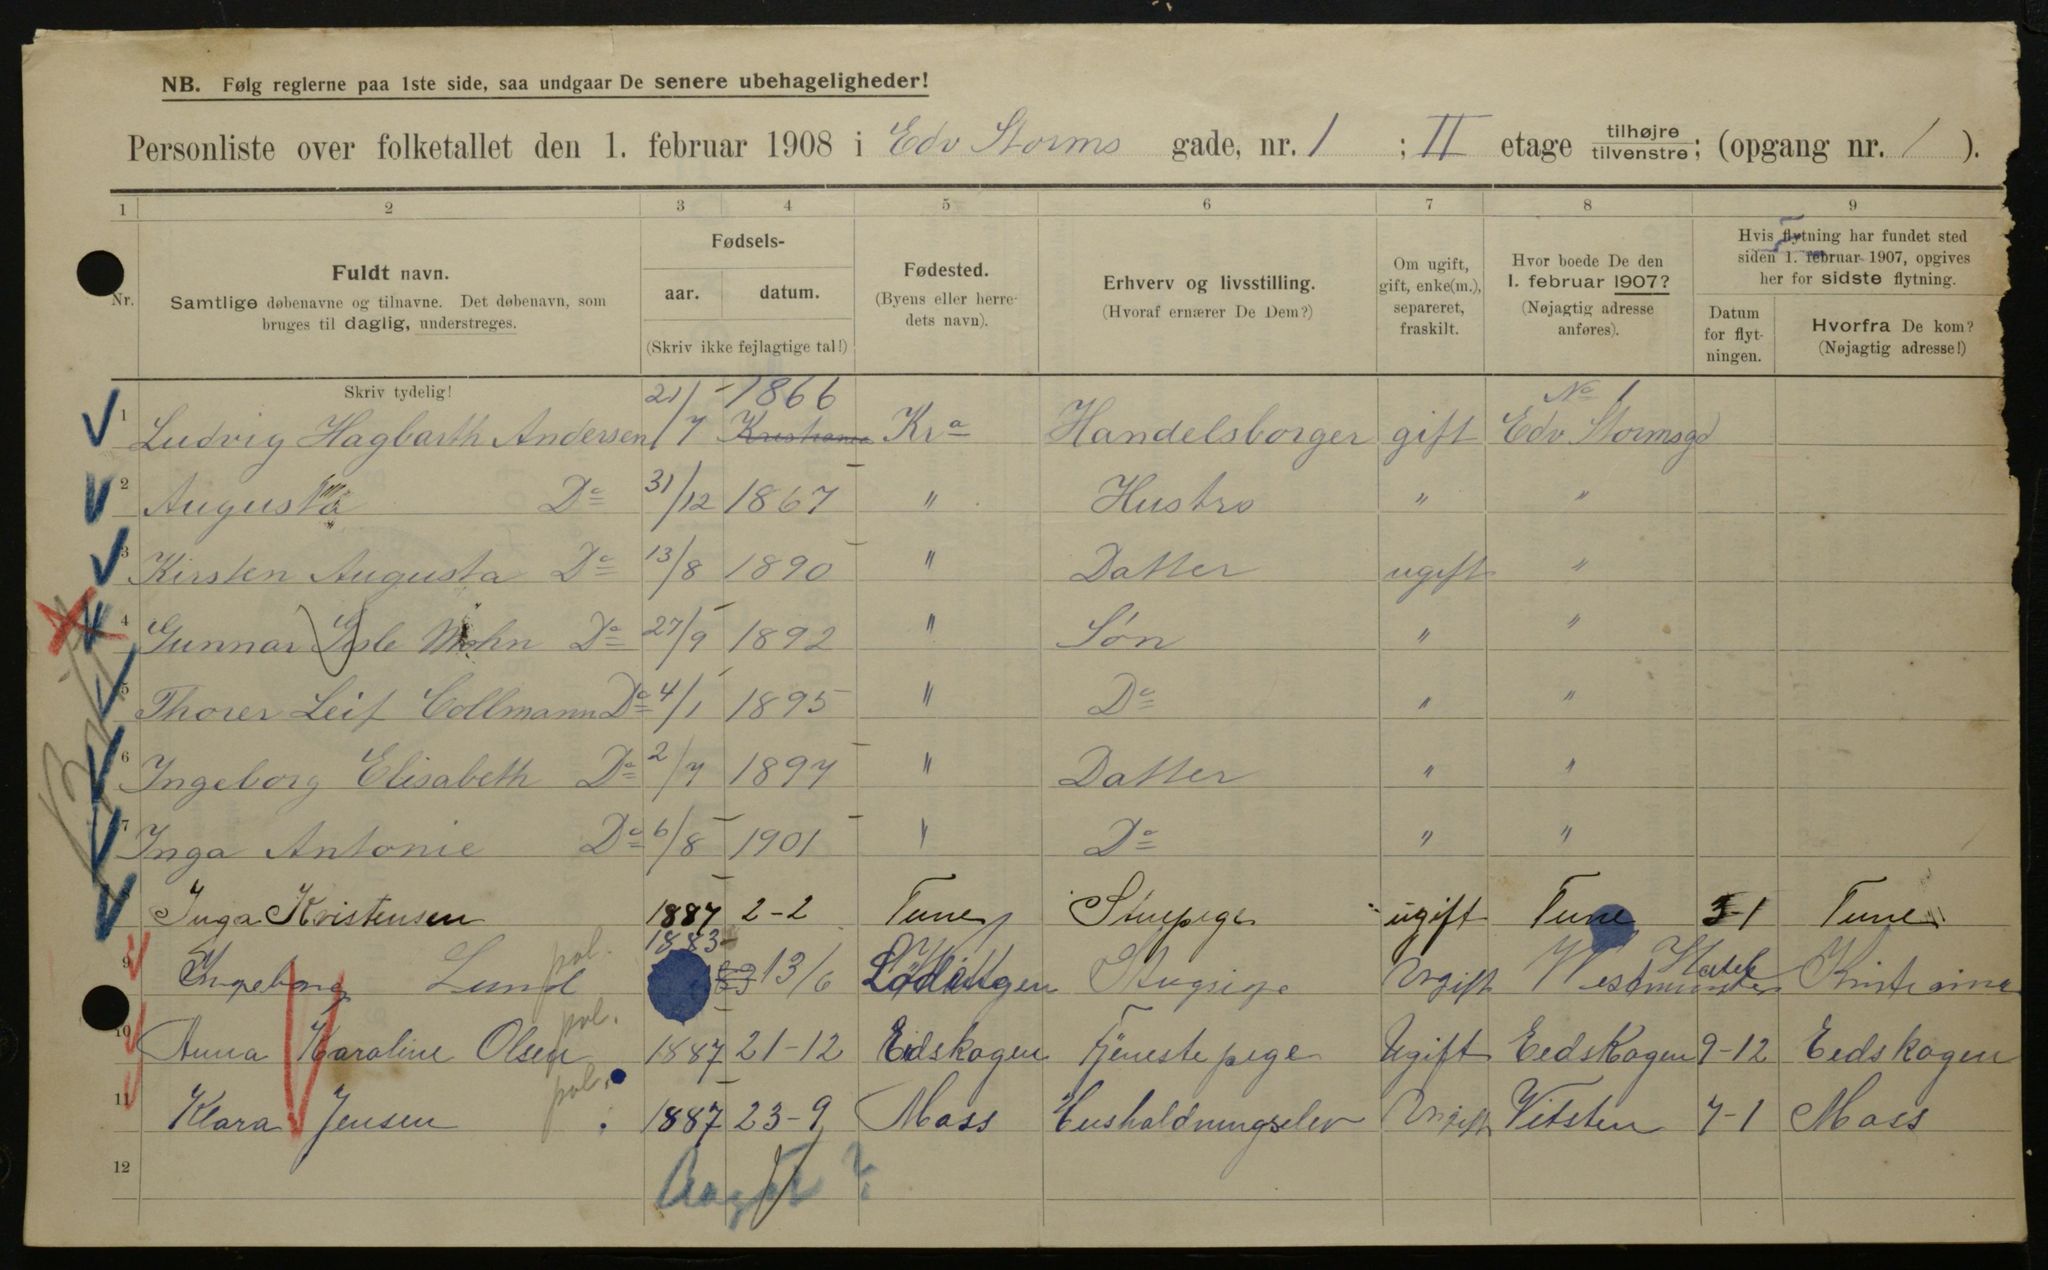 NB. Følg reglerne paa 1ste side, saa undgaar De senere ubehageligheder!
Personliste over folketallet den 1. februar 1908 i Edv Storms gade, nr. 1 ; II etage tilhøjre tilvenstre; (opgang nr. 1 ).
1 2 3 4 5 6 7 8 9
Nr.
Fuldt navn.
Samtlige døbenavne og tilnavne. Det døbenavn, som
bruges til daglig, understreges.
Skriv tydelig!
Fødsels-
aar. datum.
(Skriv ikke fejlagtige tal!)
Fødested.
(Byens eller herre-
dets navn).
Erhverv og livsstilling.
(Hvoraf ernærer De Dem?)
Om ugift,
gift, enke(m.),
separeret,
fraskilt.
Hvor boede De den
1. februar 1907?
(Nøjagtig adresse
anføres).
Hvis flytning har fundet sted
siden 1. februar 1907, opgives
her for sidste flytning.
Datum
for flyt-
ningen.
Hvorfra De kom?
(Nøjagtig adresse!)
1 Ludvig Hagbarth Andersen 21/7 1866 Kristiania Kra Handelsborger gift No 1 Edv Stormsgd
2 Augusta Do 31/12 1867 " Hustro " "
3 Kirsten Augusta Do 13/8 1890 " Datter ugift "
4 Gunnar Gisle Mohn Do 27/9 1892 " Søn " "
5 Thorer Leif Collmann Do 4/1 1895 " Do " "
6 Ingeborg Elisabeth Do 2/7 1897 " Datter " "
7 Inga Antonie Do 6/8 1901 " Do " "
8 Inga Kristensen 1887 2-2 Tune Stuepige ugift Tune 3-1 Tune
9 Ingeborg Lund pol. 1883 13/6 Ugift Kristiania
10 Anna Karoline Olsen pol. 1887 21-12 Eidskogen Tjenestepige Ugift Eedskogen 9-12 Eedskogen
11 Klara Jensen pol. 1887 23-9 Moss Husholdningselev Ugift Vitsten 7-1 Moss
12